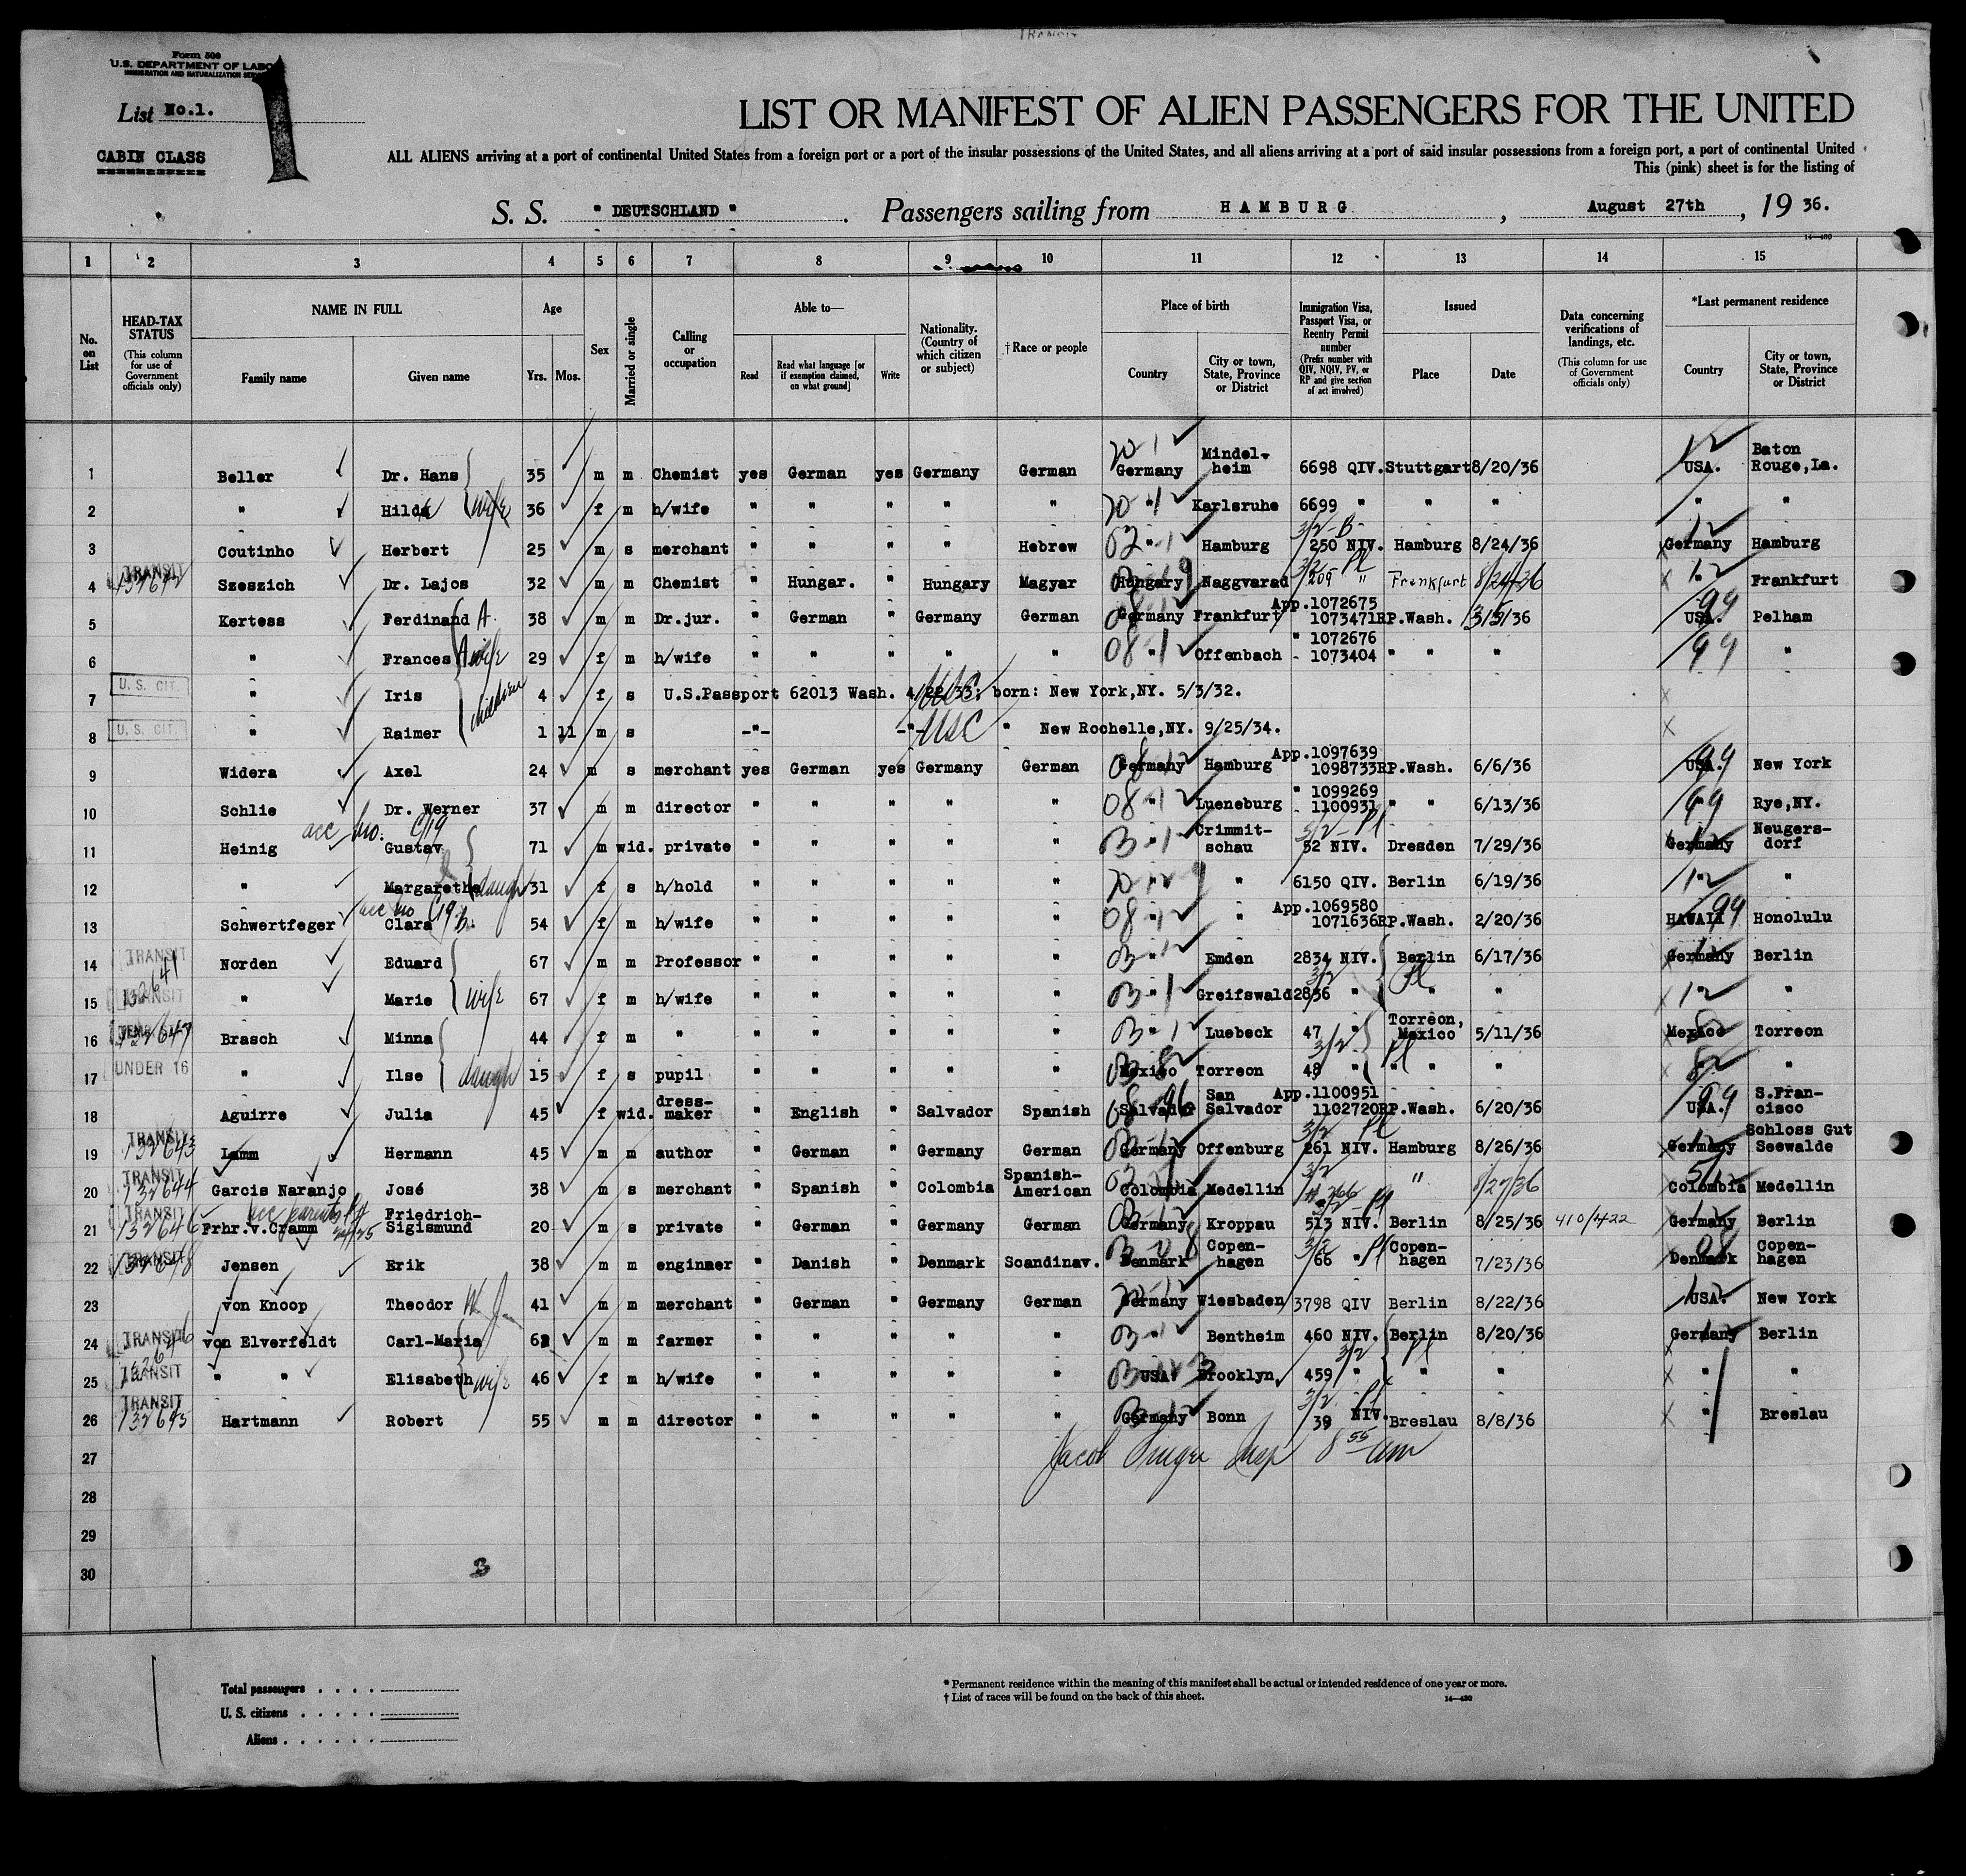 TRANSIT
Form 500
U.S. DEPARTMENT OF LABOR
IMMIGRATION AND NATURALIZATION SERVICE
List No.1.
1
CABIN CLASS
LIST OR MANIFEST OF ALIEN PASSENGERS FOR THE UNITED
ALL ALIENS arriving at a port of continental United States from a foreign port or a port of the insular possessions of the United States, and all aliens arriving at a port of said insular possessions from a foreign port, a port of continental United
This (pink) sheet is for the listing of
S. S. " DEUTSCHLAND " . Passengers sailing from HAMBURG , August 27th , 19 36.
14—430
1 2 3 4 5 6 7 8 9 10 11 12 13 14 15
No. on List
HEAD-TAX STATUS (This column for use of Government officials only)
NAME IN FULL Family name Given name
Age Yrs. Mos.
Sex
Married or single
Calling or occupation
Able to— Read Read what language [or if exemption claimed, on what ground] Write
Nationality. (Country of which citizen or subject)
†Race or people
Place of birth Country City or town, State, Province or District
Immigration Visa, Passport Visa, or Reentry Permit number (Prefix number with QIV, NQIV, PV, or RP and give section of act involved)
Issued Place Date
Data concerning verifications of landings, etc. (This column for use of Government officials only)
*Last permanent residence Country City or town, State, Province or District
1 Beller Dr. Hans 35 m m Chemist yes German yes Germany German Germany Mindelheim 6698 QIV. Stuttgart 8/20/36 USA. Baton Rouge, La.
2 " Hilda wife 36 f m h/wife " " " " " " Karlsruhe 6699 " " " " "
3 Coutinho Herbert 25 m s merchant " " " " Hebrew " Hamburg 3/2-B 250 NIV. Hamburg 8/24/36 Germany Hamburg
4 TRANSIT Szeszich Dr. Lajos 32 m m Chemist " Hungar. " Hungary Magyar Hungary Naggvarad 3/2 Pl 209 " Frankfurt 8/24/36 Frankfurt
5 Kertess Ferdinand A. 38 m m Dr.jur. " German " Germany German Germany Frankfurt App.1072675 1073471RP. Wash. 3/5/36 USA. 99 Pelham
6 " Frances A wife 29 f m h/wife " " " " " " Offenbach " 1072676 - 1073404 " " " 99 "
7 U. S. CIT. " Iris children 4 f s U.S.Passport 62013 Wash. 4/22/33; born: New York,NY. 5/3/32. USC
8 U. S. CIT. " Raimer 1 11 m s -"- -"- USC " New Rochelle,NY. 9/25/34.
9 Widera Axel 24 m s merchant yes German yes Germany German Germany Hamburg App.1097639 1098733RP. Wash. 6/6/36 USA. 99 New York
10 Schlie Dr. Werner 37 m m director " " " " " " Lueneburg " 1099269 - 1100931 " " 6/13/36 99 Rye,NY.
acc no. C/19
11 Heinig Gustav 71 m wid. private " " " " " " Crimmitschau 3/2-Pl 52 NIV. Dresden 7/29/36 Germany Neugersdorf
12 " Margarethe daugh 31 f s h/hold " " " " " " 6150 QIV. Berlin 6/19/36 "
acc no C/19
13 Schwertfeger Clara 54 f m h/wife " " " " " " App.1069580 1071636RP. Wash. 2/20/36 HAWAII 99 Honolulu
14 TRANSIT Norden Eduard 67 m m Professor " " " " " " Emden 2834 NIV. Berlin 6/17/36 Germany Berlin
15 TRANSIT " Marie wife 67 f m h/wife " " " " " " Greifswald 3/2 2836 " Pl " " "
16 Brasch Minna 44 f m " " " " " " " Luebeck 47 " Torreon, Mexico 5/11/36 Mexico Torreon
17 UNDER 16 " Ilse daugh 15 f s pupil " " " " " Mexico Torreon 3/2 48 " Pl " " " "
18 Aguirre Julia 45 f wid. dressmaker " English " Salvador Spanish Salvador San Salvador App.1100951 1102720RP. Wash. 6/20/36 USA. 99 S.Francisco
19 TRANSIT 132643 Lamm Hermann 45 m m author " German " Germany German Germany Offenburg 3/2 Pl 261 NIV. Hamburg 8/26/36 Germany Schloss Gut Seewalde
20 TRANSIT 132644 Garcis Naranjo José 38 m s merchant " Spanish " Colombia Spanish-American Colombia Medellin 3/2 266 " 8/27/36 Colombia Medellin
acc parents Pg 24/25
21 TRANSIT 132646 Frhr.v.Cramm Friedrich-Sigismund 20 m s private " German " Germany German Germany Kroppau 3/2-Pl 513 NIV. Berlin 8/25/36 410/422 Germany Berlin
22 TRANSIT 132648 Jensen Erik 38 m m engineer " Danish " Denmark Scandinav. Denmark Copenhagen 3/2 66 " Pl Copenhagen 7/23/36 Denmark Copenhagen
23 von Knoop Theodor 41 m m merchant " German " Germany German Germany Wiesbaden 3798 QIV Berlin 8/22/36 USA. New York
24 TRANSIT von Elverfeldt Carl-Maria 62 m m farmer " " " " " " Bentheim 460 NIV. Berlin 8/20/36 Germany Berlin
25 TRANSIT " " Elisabeth wife 46 f m h/wife " " " " " USA. Brooklyn, 3/2 459 " Pl " " " "
26 TRANSIT 132645 Hartmann Robert 55 m m director " " " " " Germany Bonn 3/2 Pl 39 NIV. Breslau 8/8/36 " Breslau
27 Jacob Insp 8 55 am
28
29
30
3
Total passengers
U. S. citizens
Aliens
* Permanent residence within the meaning of this manifest shall be actual or intended residence of one year or more.
† List of races will be found on the back of this sheet.
14—430